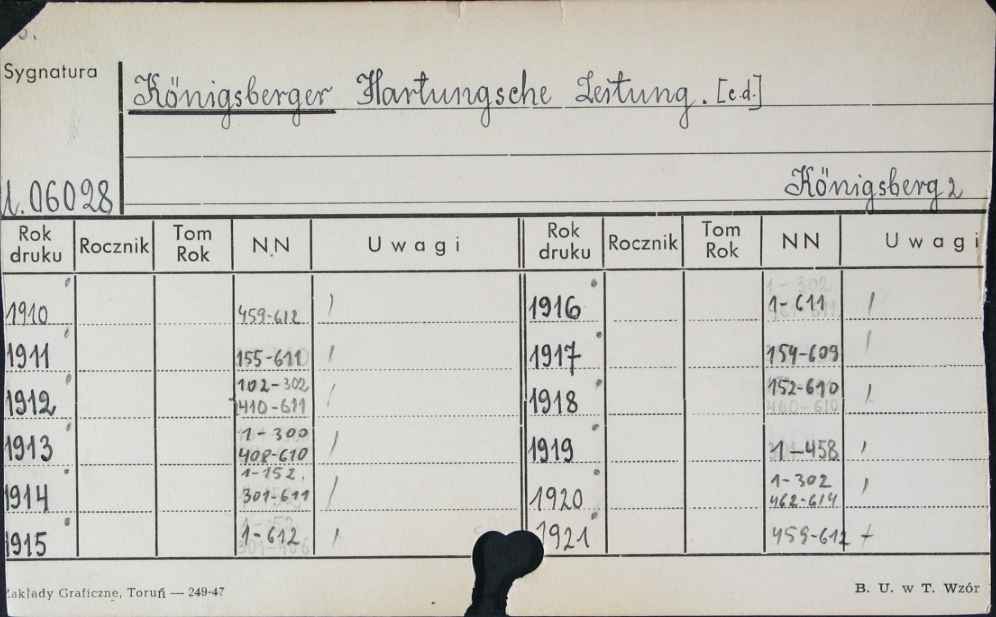 Sygnatura
Königsberger Hartungsche Zeitung. [c.d.]
06028
Königsberg
Rok druku Rocznik Tom Rok NN Uwagi Rok druku Rocznik Tom Rok NN Uwagi
1910 459-612 1916 1-611
1911 155-611 1917 154-609
1912 102-302 410-611 1918 152-610
1913 1-300 408-610 1919 1-458
1914 1-152. 301-611 1920 1-302 462-614
1915 1-612 1921 459-612 +
Zakłady Graficzne, Toruń — 249-47
B. U. w T. Wzór